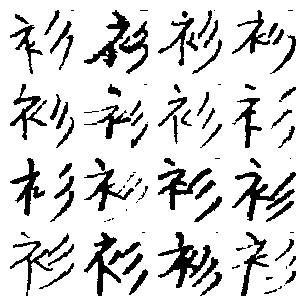 衫衫衫衫
衫衫衫衫
衫衫衫衫
衫衫衫衫